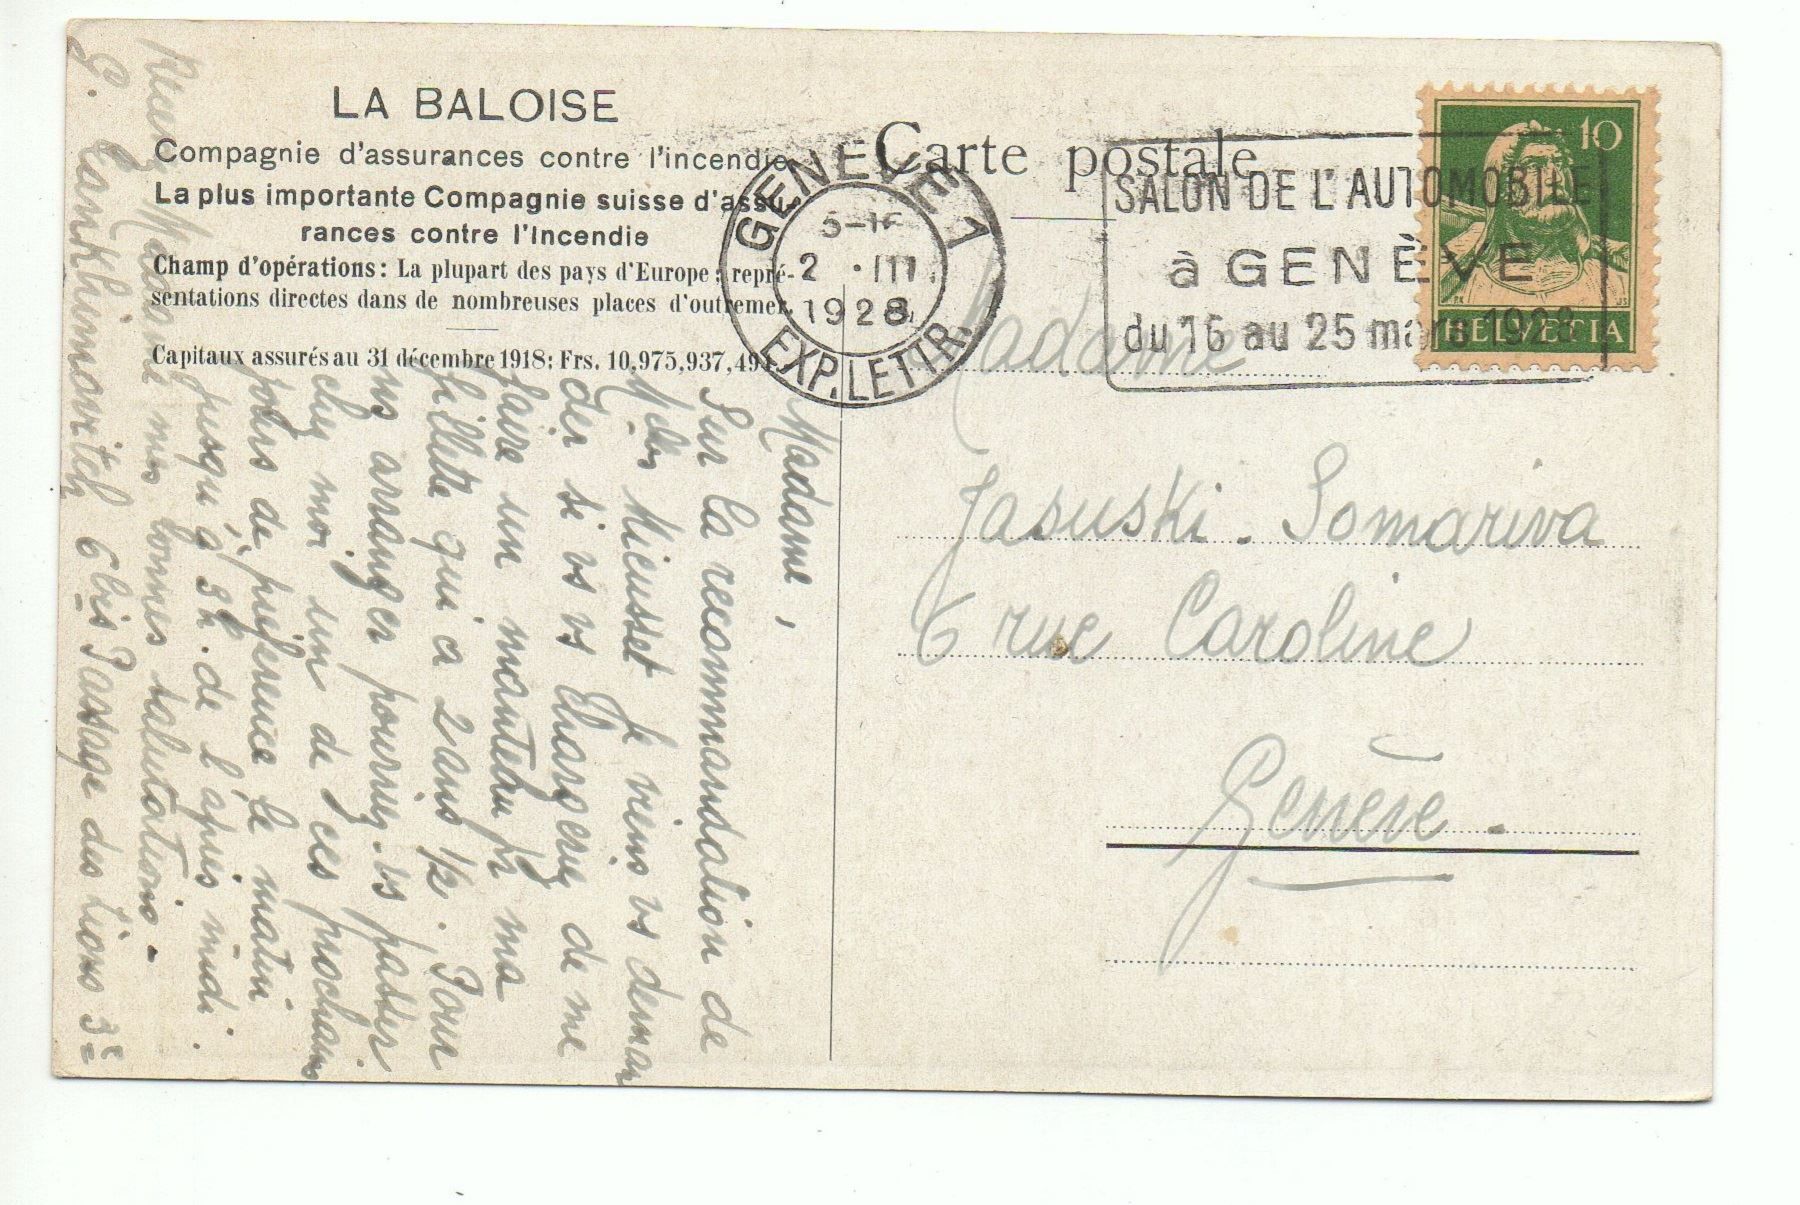 LA BALOISE
Compagnie d'assurances contre l'incendie
La plus importante Compagnie suisse d'assu-
rances contre l'Incendie
Champ d'opérations: La plupart des pays d'Europe; repré-
sentations directes dans de nombreuses places d'outremer.
Capitaux assurés au 31 décembre 1918: Frs. 10,975,937,494
Carte postale
GENÈVE 1
2 · III
1928
EXP. LETTR.
SALON DE L'AUTOMOBILE
à GENÈVE
du 16 au 25 mars 1928
10
HELVETIA
Madame
Jasuski. Somariva
6 rue Caroline
Genève.
Madame,
Sur la recommandation de
Mieusset je viens vs deman
der si vs vs chargeriez de me
faire un manteau pr ma
fillette qui a 2 ans 1/2. Pour
ns arranger pourriez-vs passer
chez moi un de ces prochains
jours de préférence le matin
jusqu'à 3h. de l'après midi.
Madame mes bonnes salutations.
6 bis Passage des Lions 3e